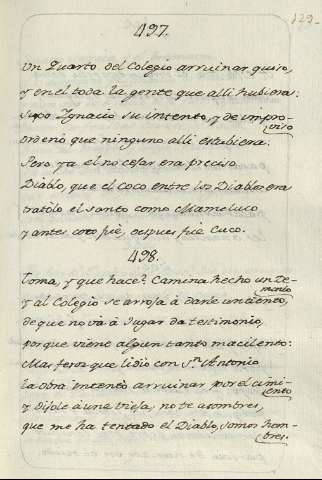 129.
497.
Un Quarto del Colegio arruinar quiso,
y en el toda la gente que alli hubiera:
Supo Ignacio su intento, y de impro-
viso
ordenó que ninguno alli estubiera.
Pero, ya el no cesar era preciso
Diablo, que el Coco entre los Diablos era
tratólo el santo como Mameluco
y antes coco fué, despues fué Cuco.
498.
Toma, y que hace? Camina hecho un De-
monio
y al Colegio se arroja á darle un tiento,
de que no vá á Jugar da testimonio,
porque viene algun tanto macilento:
Mas feroz que lidió con Sn. Antonio
la obra intentó arruinar por el cimi-
ento
y Dijole á una Vieja, no te asombres,
que me ha tentado el Diablo, somos hom-
bres.